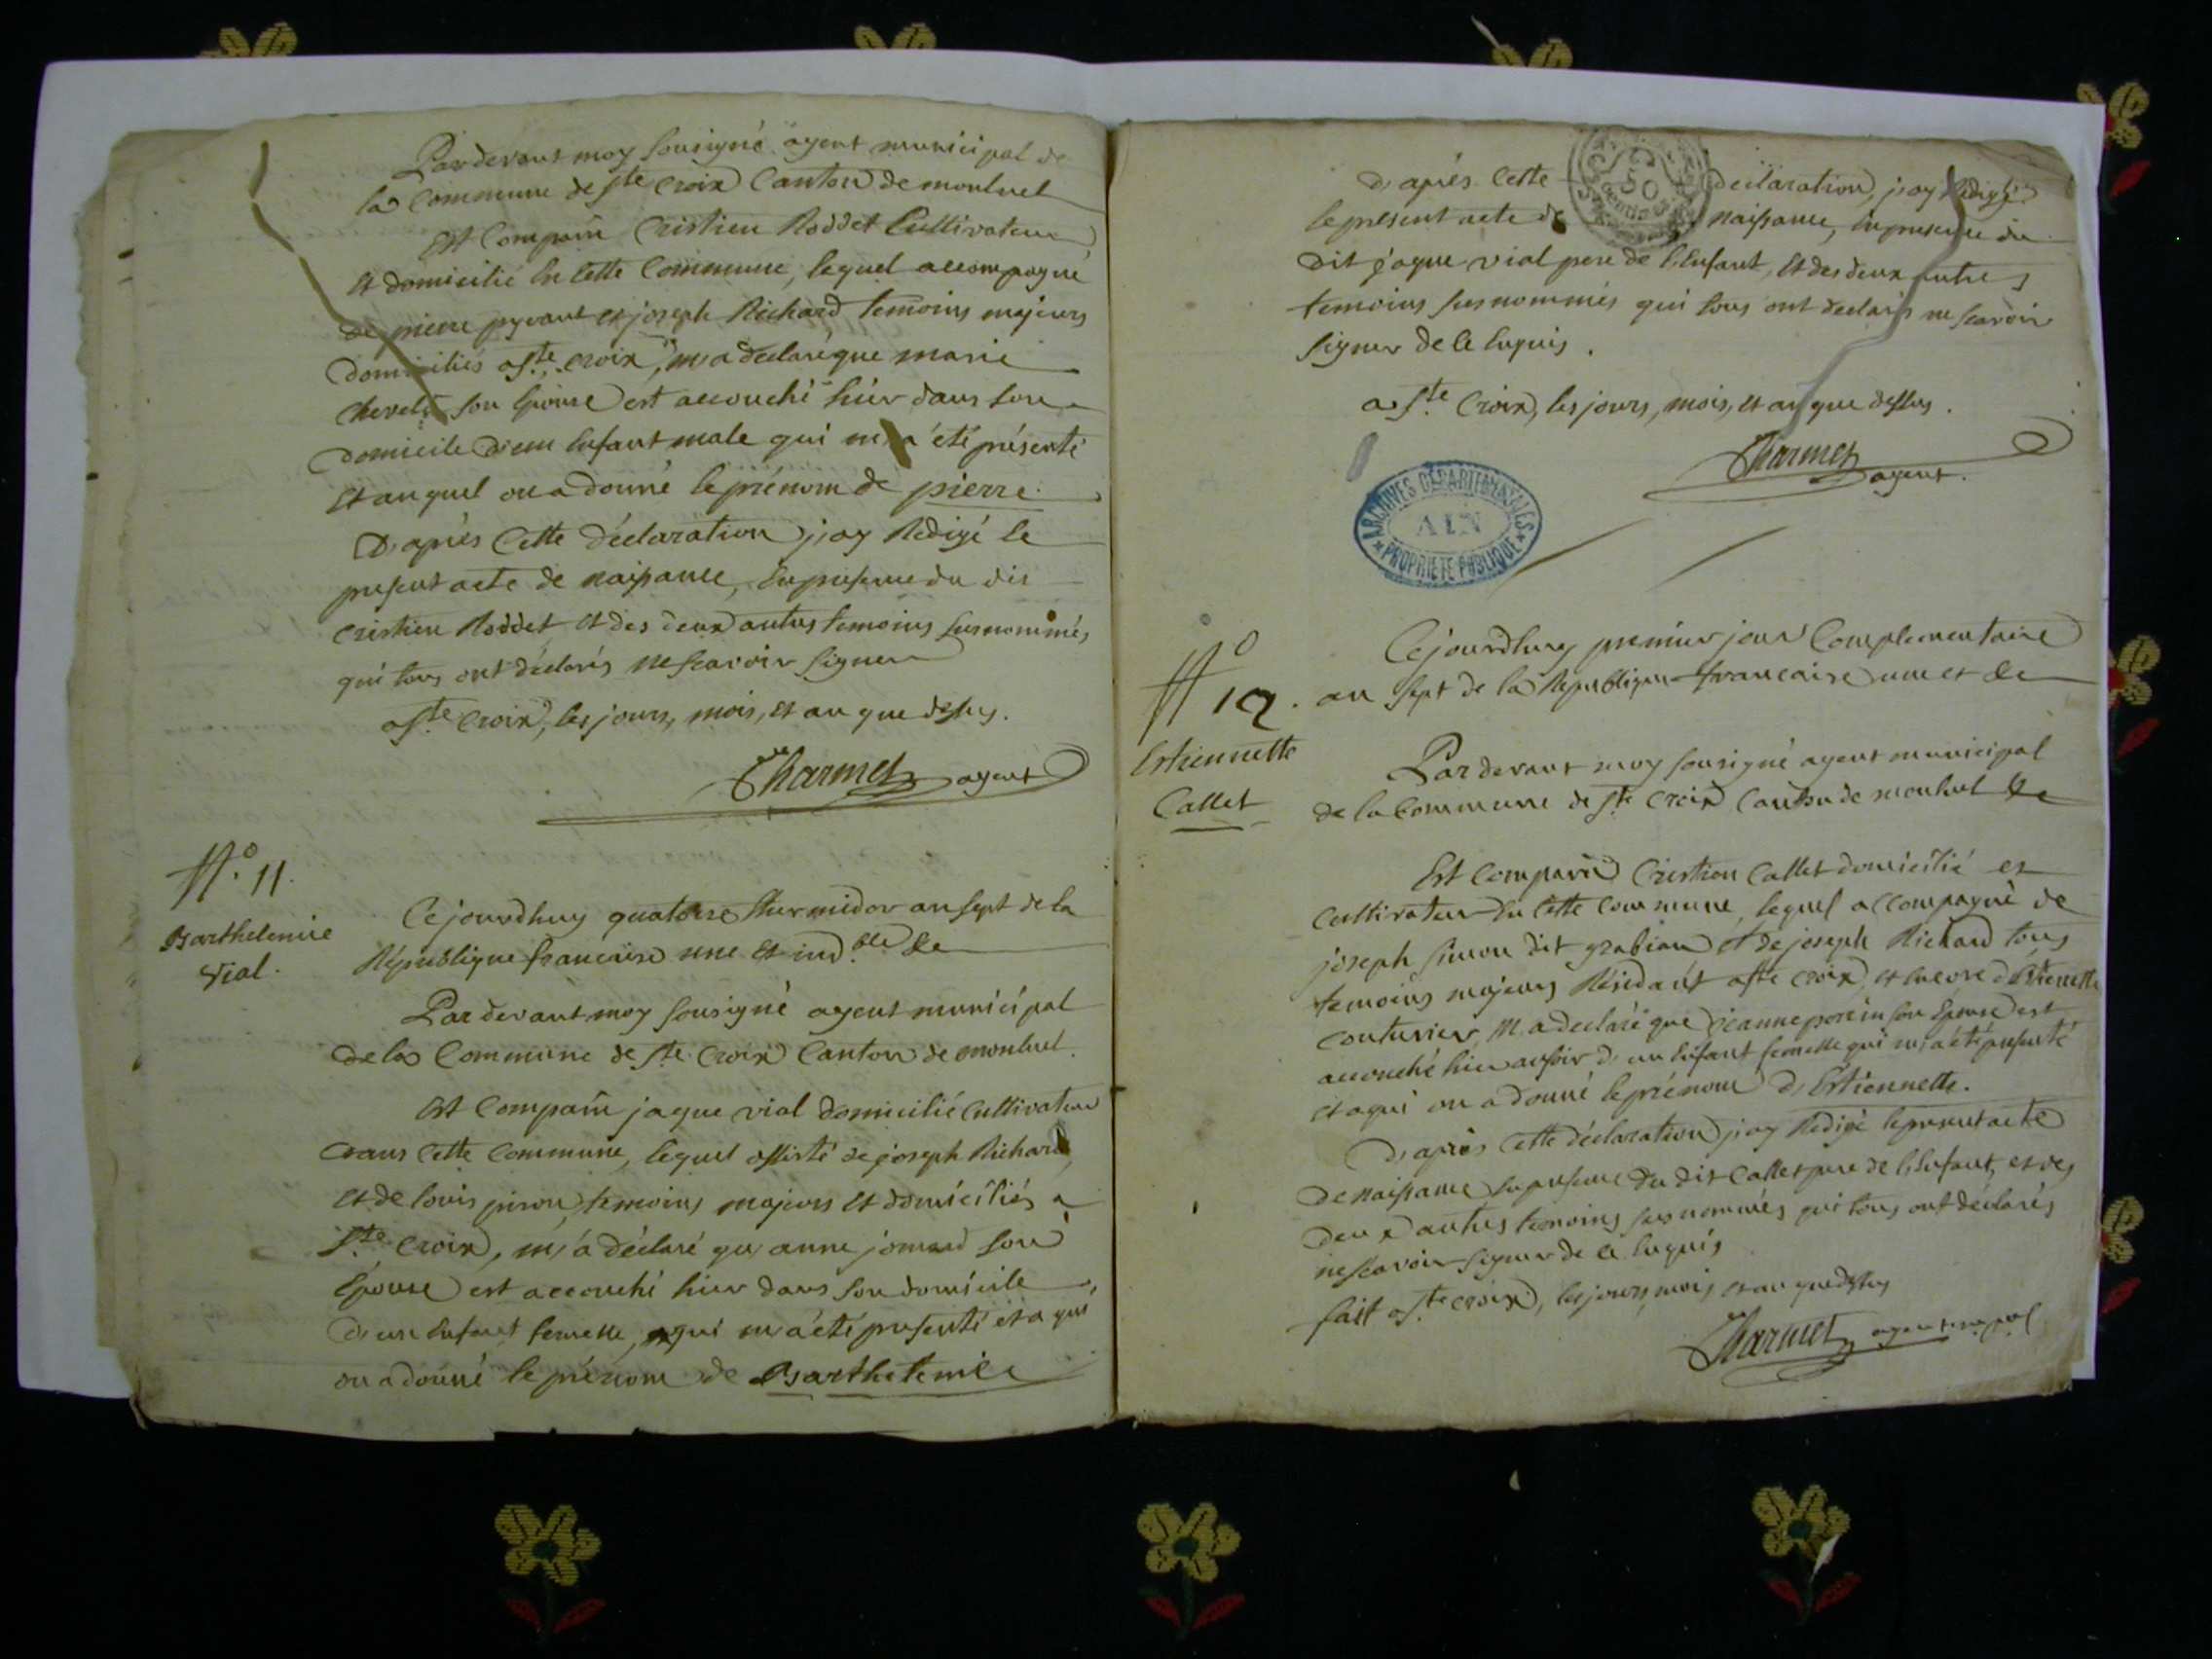 Pardevant moy sousigné agent municipal de
la Commune de Ste Croix Canton de montuel
Est Comparu Cristien Roddet Cultivateur
et domicilié en Cette Commune, lequel accompagné
de pierre pyvant et joseph Richard temoins majeurs
domiciliés a Ste Croix, m'a declaré que marie
son Epouse est accouché hier dans son
domicile d'un Enfant male qui m'a été présenté
et auquel on a donné le prénom de pierre.
D'après Cette déclaration j'ay Redigé le
present acte de naissance, En presence du dit
cristien Roddet et des deux autres temoins susnommés,
qui tous ont déclarés ne scavoir signer
a Ste Croix, les jours, mois, et an que dessus.
Charmet agent
N.° 11.
Barthelemie
Vial.
Cejourdhuy quatorse thermidor an sept de la
République francaise une et ind.ble &c
Pardevant moy sousigné agent municipal
de la Commune de Ste Croix Canton de montuel.
Est Comparu jaque vial domicilié Cultivateur
dans Cette Commune, lequel assisté de joseph Richard
et de louis piron, temoins majeurs et domiciliés a
Ste Croix, m'a déclaré qu'anne jomard son
Epouse est accouché hier dans son domicile,
d'un Enfant femelle, qui m'a été presenté et a qui
on a donné le prénom de Barthelemie
50
D'après Cette declaration, j'ay Redigé
le present acte de naissance, En presence du
dit jaque vial pere de l'Enfant, et des deux autres
temoins susnommés qui tous ont declarés ne scavoir
signer de ce Enquis.
a Ste Croix, les jours, mois, et an que dessus.
Charmet
agent.
ARCHIVES DÉPARTEMENTALES
AIN
PROPRIÉTÉ PUBLIQUE
N° 12.
Estiennette
Callet
Cejourdhuy premier jour Complementaire
an sept de la Republique francaise une et &c
Pardevant moy sousigné agent municipal
de la Commune de Ste Croix Canton de montuel &c
Est Comparu Cristien Callet domicilié et
Cultivateur En Cette Commune, lequel accompagné de
joseph simon dit grabian et de joseph Richard tous
temoins majeurs Résidant a Ste Croix, et encore d'Estiennette
couturier, M'a declaré que jeanne perin son Epouse est
accouché hier au soir d'un Enfant femelle qui m'a été presenté
et a qui on a donné le prénom d'Estiennette.
D'après Cette déclaration j'ay Redigé le present acte
de naissance En presence du dit Callet pere de l'Enfant, et des
deux autres temoins susnommés qui tous ont déclarés
ne scavoir signer de ce Enquis
fait a Ste Croix, les jours, mois et an que dessus
Charmet agent